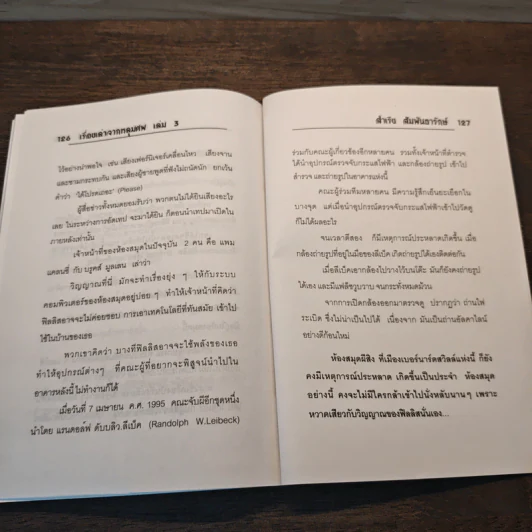 126 เรื่องเล่าจากหลุมศพ เล่ม 3
ไว้อย่างน่าพอใจ เช่น เสียงเฟอร์นิเจอร์เคลื่อนไหว เสียงจาน
และชามกระทบกัน และเสียงผู้ชายพูดที่ฟังไม่ถนัดนัก ยกเว้น
คำว่า "ได้โปรดเถอะ" (Please)
ผู้สื่อข่าวทั้งหมดยอมรับว่า พวกตนไม่ได้ยินเสียงอะไร
เลย ในระหว่างการอัดเทป จะมาได้ยิน ก็ตอนนำเทปมาเปิดใน
ภายหลังเท่านั้น
เจ้าหน้าที่ของห้องสมุดในปัจจุบัน 2 คน คือ แพม
แคสนซี่ กับ บรูคส์ มูลเลน เล่าว่า
วิญญาณที่นี่ มักจะทำเรื่องยุ่ง ๆ ให้กับระบบ
คอมพิวเตอร์ของห้องสมุดอยู่บ่อย ๆ ทำให้เจ้าหน้าที่คิดว่า
ฟิลลิสอาจจะไม่ค่อยชอบ การเอาเทคโนโลยีที่ทันสมัย เข้าไป
ใช้ในบ้านของเธอ
พวกเขาคิดว่า บางทีฟิลลิสอาจจะใช้พลังของเธอ
ทำให้อุปกรณ์ต่างๆ ที่คณะผู้ที่อยากจะพิสูจน์นำไปใน
อาคารหลังนี้ ไม่ทำงานก็ได้
เมื่อวันที่ 7 เมษายน ค.ศ. 1995 คณะจับผีอีกชุดหนึ่ง
นำโดย แรนดอล์ฟ ดับบลิว.ลีเบ็ค (Randolph W.Leibeck)
สำเริง สัมพันธารักษ์ 127
ร่วมกับคณะผู้เกี่ยวข้องอีกหลายคน รวมทั้งเจ้าหน้าที่ตำรวจ
ได้นำอุปกรณ์ตรวจจับกระแสไฟฟ้า และกล้องถ่ายรูป เข้าไป
สำรวจ และถ่ายรูปในอาคารแห่งนี้
คณะผู้ร่วมทีมหลายคน มีความรู้สึกเย็นยะเยือกใน
บางจุด แต่เมื่อนำอุปกรณ์ตรวจจับกระแสไฟฟ้าเข้าไปวัดดู
ก็ไม่ได้ผลอะไร
จนเวลาตีสอง ก็มีเหตุการณ์ประหลาดเกิดขึ้น เมื่อ
กล้องถ่ายรูปที่อยู่ในมือของลีเบ็ค เกิดถ่ายรูปได้เองติดต่อกัน
เมื่อลีเบ็คเอากล้องไปวางไว้บนโต๊ะ มันก็ยังคงถ่ายรูป
ได้เอง และมีแฟลชวูบวาบ จนกระทั่งหมดม้วน
จากการเปิดกล้องออกมาตรวจดู ปรากฏว่า ถ่านไฟ
ระเบิด ซึ่งไม่น่าเป็นไปได้ เนื่องจาก มันเป็นถ่านอัลคาไลน์
อย่างดีก้อนใหม่
ห้องสมุดผีสิง ที่เมืองเบอร์นาร์ดสวิลล์แห่งนี้ ก็ยัง
คงมีเหตุการณ์ประหลาด เกิดขึ้นเป็นประจำ ห้องสมุด
อย่างนี้ คงจะไม่มีใครกล้าเข้าไปนั่งหลับนานๆ เพราะ
หวาดเสียวกับวิญญาณของฟิลลิสนั่นเอง...